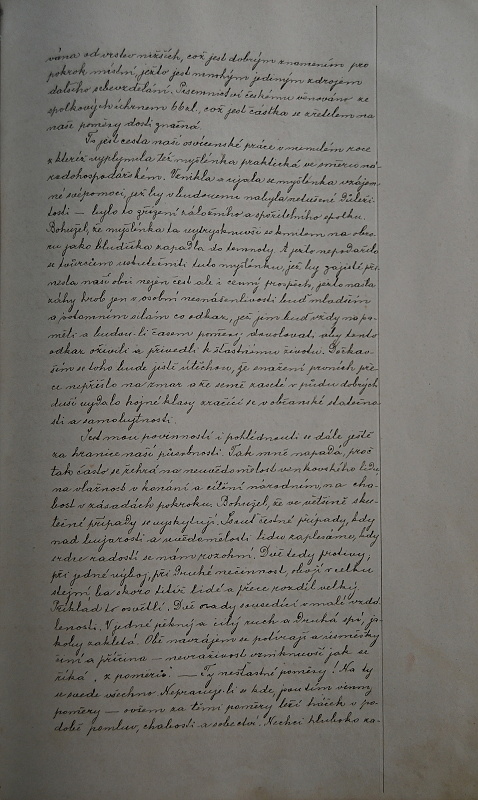 vána od vrstev nižších, což jest dobrým znamením pro
pokrok místní, jezto jest mnohým jediným zdrojem
dalšího sebevzdělání. Písemnictví českému věnováno ze
spolkových úchrnem 66 zl., což jest částka se zřetelem na
naše poměry dosti značná.
To jest cesta naší osvícenské práce v minulém roce
z kteréž vyplynula též myšlénka praktická ve směru ná-
rodohospodářském. Vznikla a ujala se myšlénka vzájem-
né svépomoci, jež by v budoucnu nabyla netušené důleži-
tosti — bylo to zřízení záložního a spořitelního spolku.
Bohužel, že myšlénka ta vytrysknuvši se kmitem na obzo-
ru jako bludička zapadla do temnoty. A jezto nepodařilo
se tvůrcům uskutečniti tuto myšlénku, jež by zajisté při-
nesla naší obci nejen čest ale i cenný prospěch, jezto nasta
záhy hrob jen v osobní nesnášenlivosti buď mladším
a potomním silám co odkaz, jež jim buď vždy na pa-
měti a budou-li časem poměry dovolovat, aby tento
odkaz oživili a přivedli k šťastnému životu. Dočkav-
ším se toho bude jistě útěchou, že snažení prvních prá-
ce nepřišlo na zmar a že símě zaseté v půdu dobrých
duší vydalo hojné klasy zračící se v občanské statečno-
sti a samostatnosti.
Jest mou povinností i pohlédnouti se dále ještě
za hranice naší působnosti. Tak mně napadá, proč
tak často se žehrá na neuvědomělost venkovského lidu
na vlažnost v konání a cítění národním, na cha-
bost v zásadách pokroku. Bohužel, že ve většině sku-
tečné případy se vyskytují. Jsou čestné případy, kdy
nad bujarostí a uvědomělostí lidu zaplesáme, kdy
srdce radostí se nám rozohní. Dvě tedy protivy,
při jedné výboj, při druhé nečinnost, obojí v celku
stejní, ba skoro titíž lidé a přece rozdíl velký.
Příklad to osvětlí. Dvě osady sousedící v malé vzdá-
lenosti. V jedné pěkný a čilý ruch a druhá spí, ja-
koby zakletá. Obě navzájem se potírají a úsměšky
činí a příčina — nevraživost vzniknuvší jak se
říká „z poměrů“. — Ty nešťastné poměry! Na ty
se svede všechno. Nepracuje-li se kde, jsou tím vinny
poměry — ovšem za těmi poměry leží háček v po-
době pomluv, chabosti a sobectví. Nechci hluboko za-